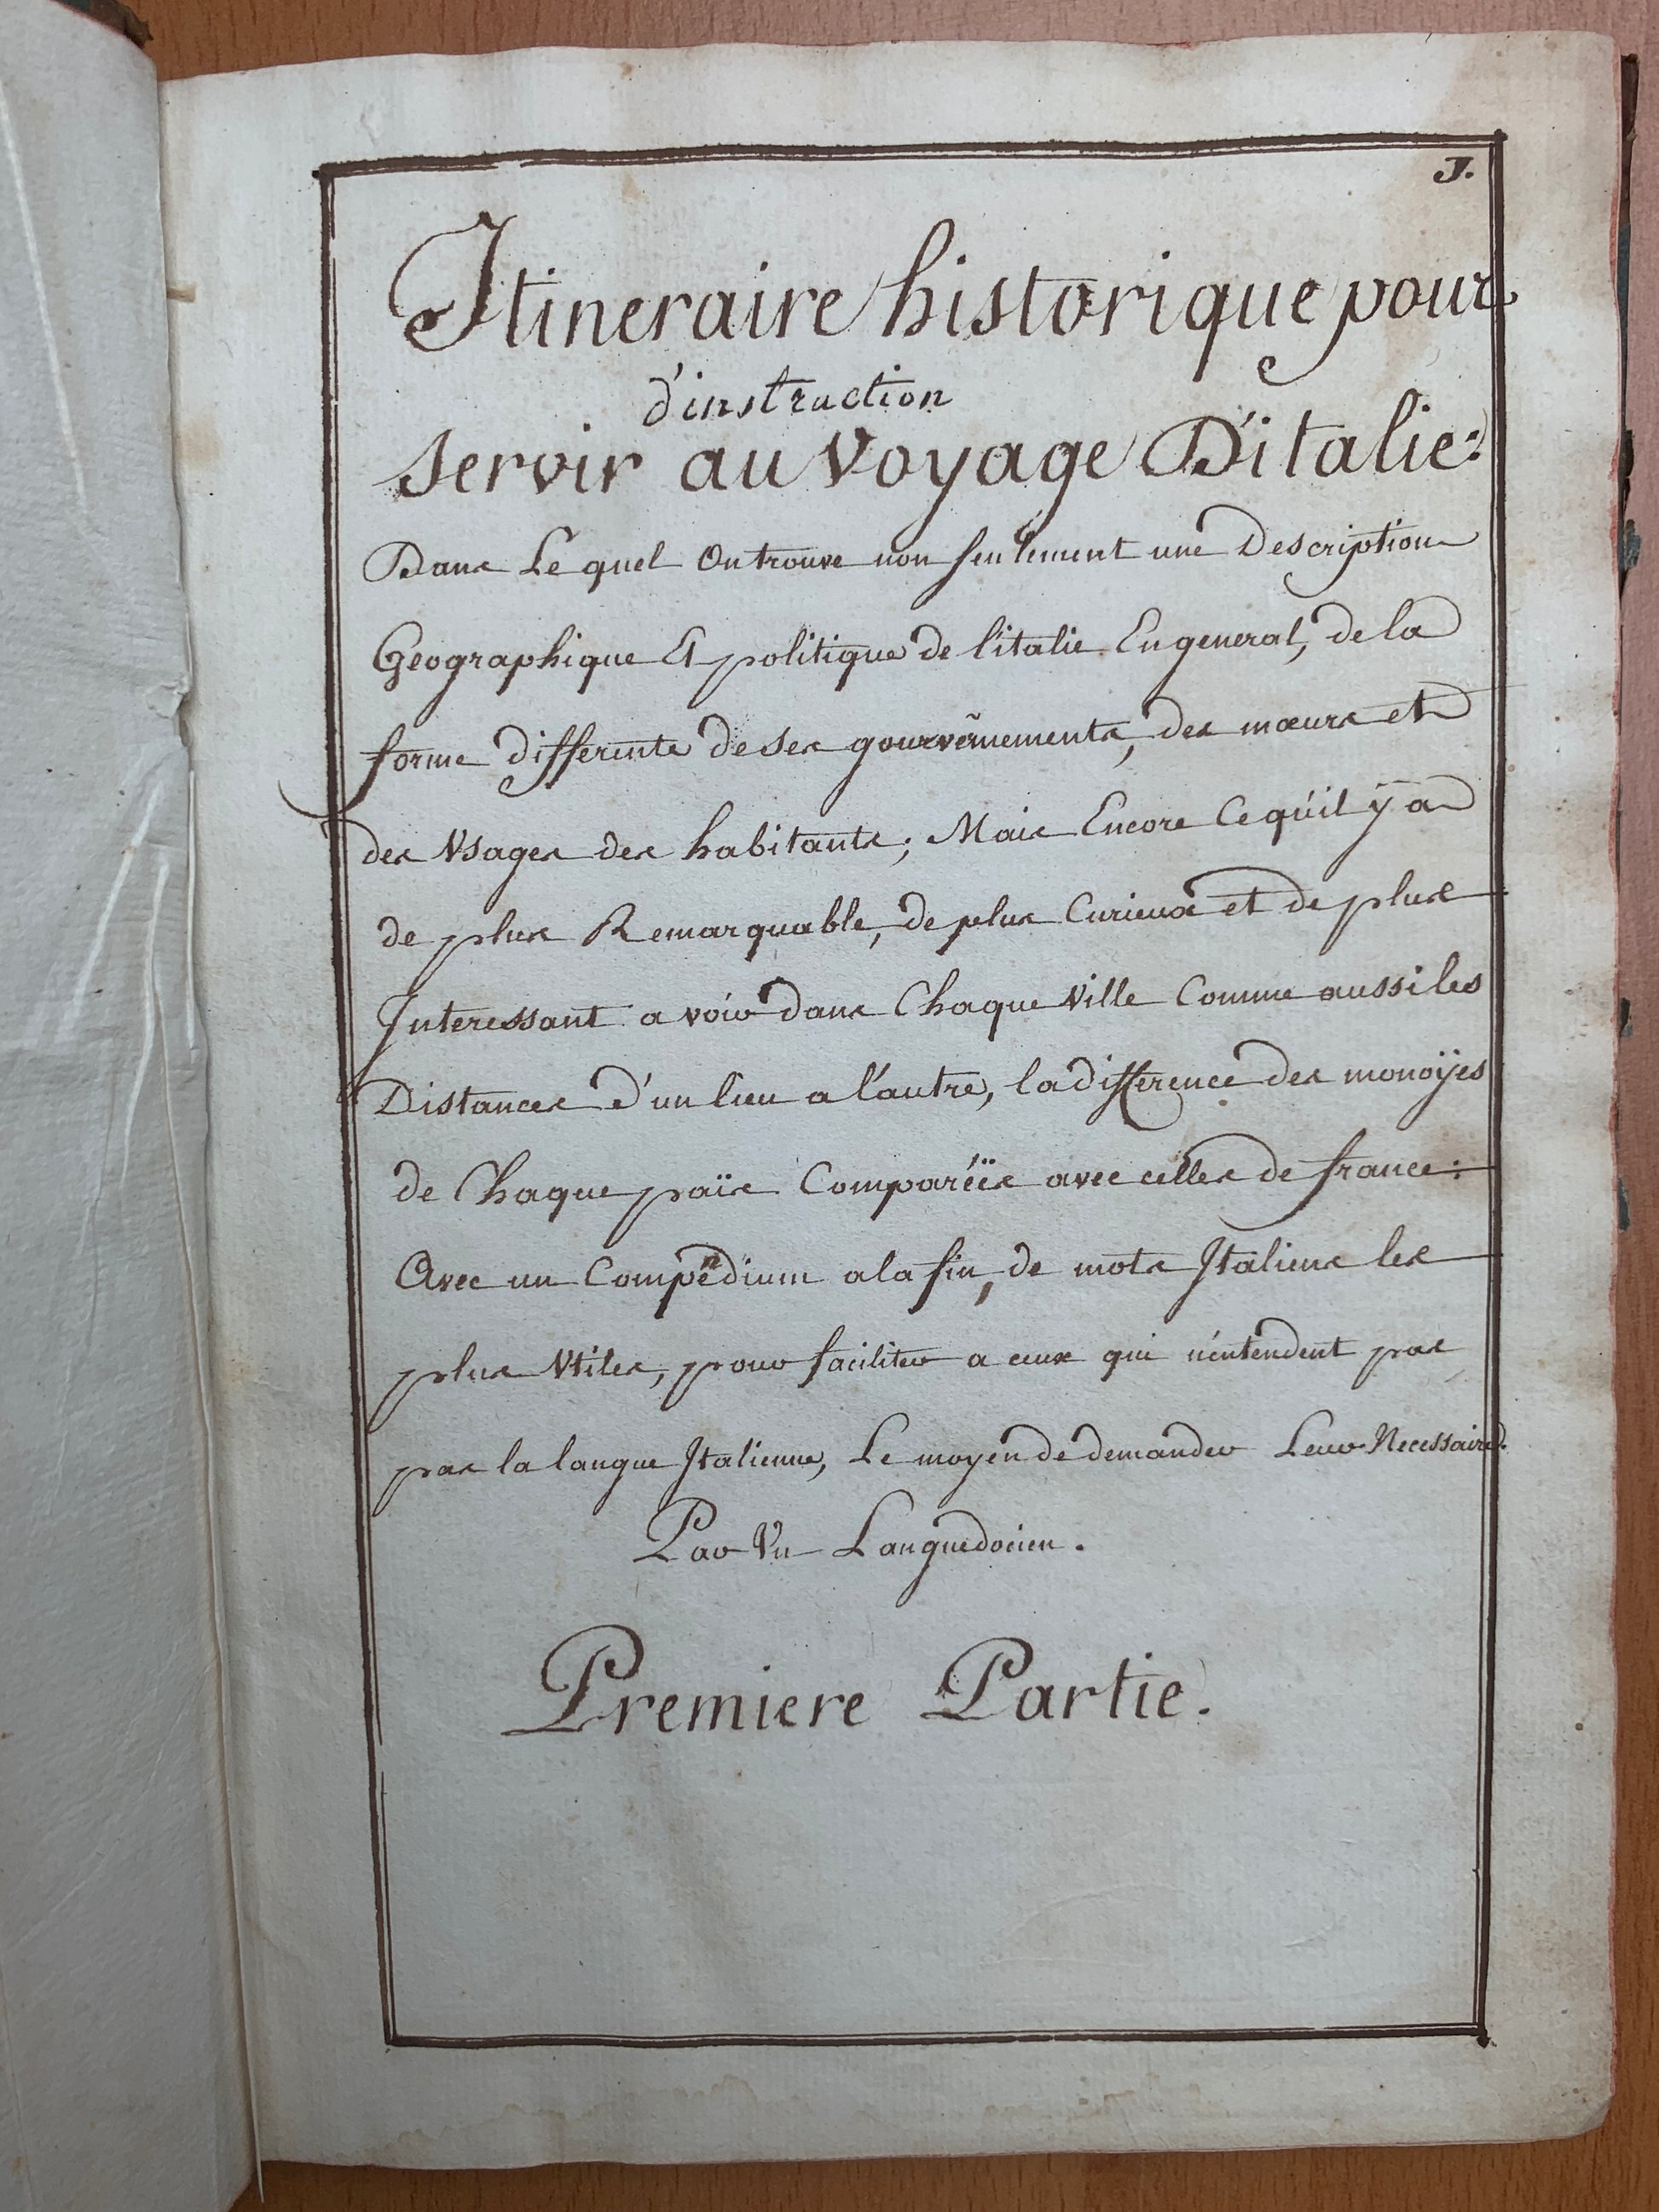 J.
Itineraire historique pour
d'instruction
servir au Voyage D'italie:
Dans Le quel On trouve non seulement une Description
Geographique Et politique de l'italie En general, de la
forme differente de ses gouverñements, des mœurs et
des Vsages des habitants; Mais Encore Ce qu'il ÿ a
de plus Remarquable, de plus Curieux et de plus
Interessant a voir dans Chaque Ville Comme aussi les
Distances d'un lieu a l'autre, la difference des monoÿes
de Chaque païs Comparéës avec celles de france:
Avec un Compendium a la fin, de mots Italiens les
plus Vtiles, pour faciliter a ceux qui n'entendent pas
pas la langue Italienne, Le moyen de demander Leur Necessaire.
Par Vn Languedocien.
Premiere Partie.